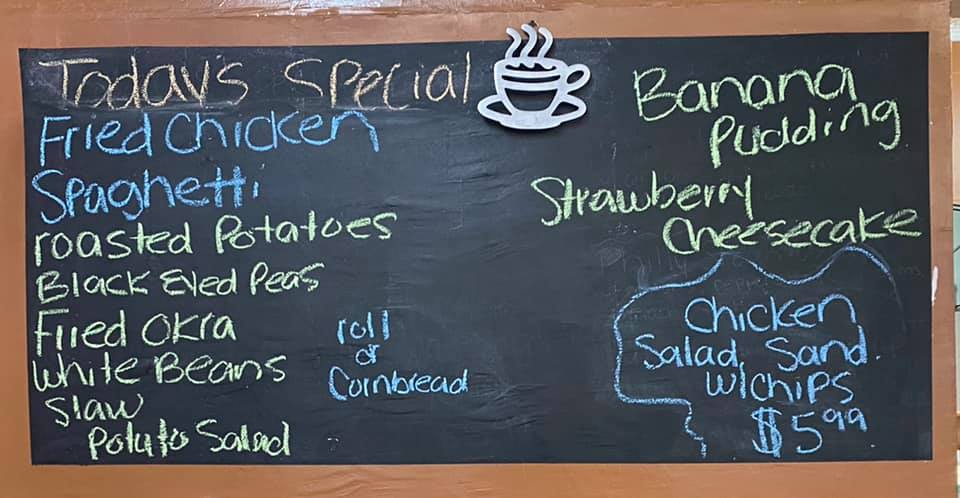 Today's Special
Fried Chicken
Spaghetti
roasted Potatoes
Black Eyed Peas
Fried Okra
White Beans
Slaw
Potato Salad
roll
or
Cornbread
Banana
Pudding
Strawberry
Cheesecake
Chicken
Salad Sand.
w/chips
$5.99